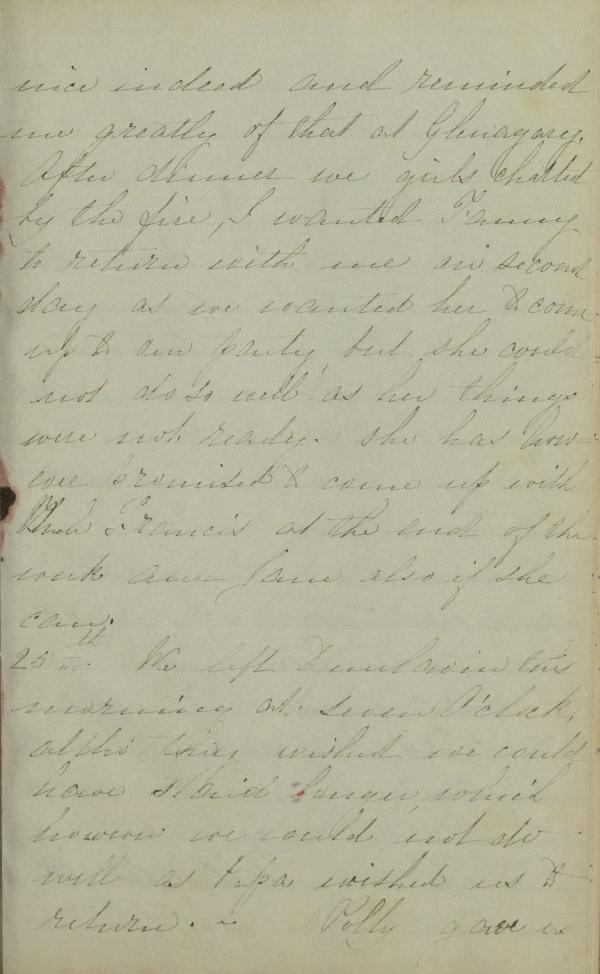 nice indeed and reminded
me greatly of that at Glenagary.
After dinner we girls chatted
by the fire, I wanted Fanny
to return with me on second
day as we wanted her to come
up to our party but she could
not do so well as her things
were not ready. She has how=
ever promised to come up with
Francis at the end of the
week and Jane also if she
can.
25th We left Dunlavin this
morning at seven O'clock,
altho they wished we could
have staid longer, which
however we could not do
well as Papa wished us to
return. ~ Polly gave us